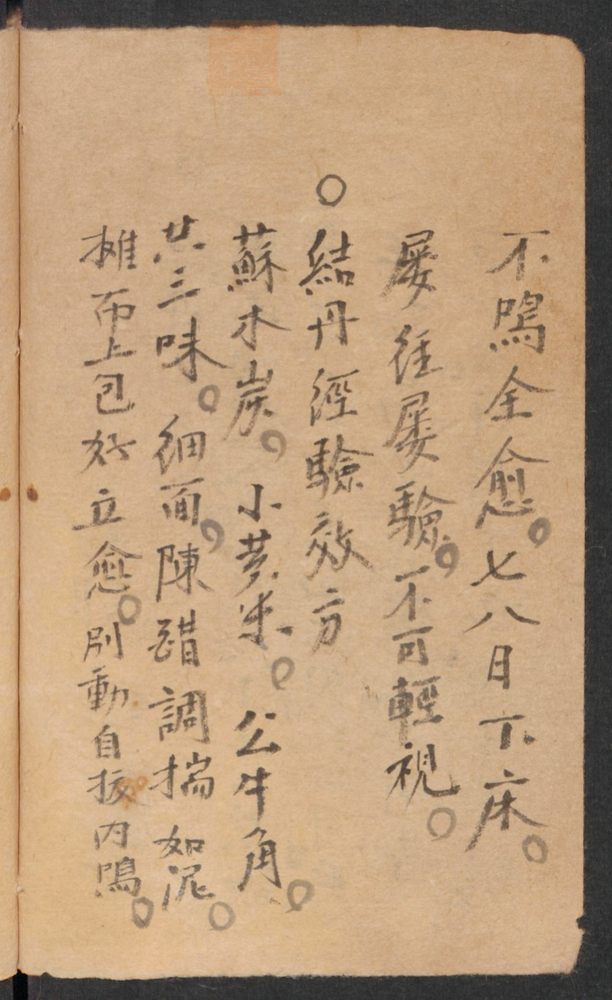 不鳴全愈。七八日下床。
屡徃屡驗。不可輕視。
○結丹經驗效方
蘇木炭。小黄米。公牛角。
共三味。細面。陳醋調揣如泥。
攤布上包好立愈。別動自接内鳴。